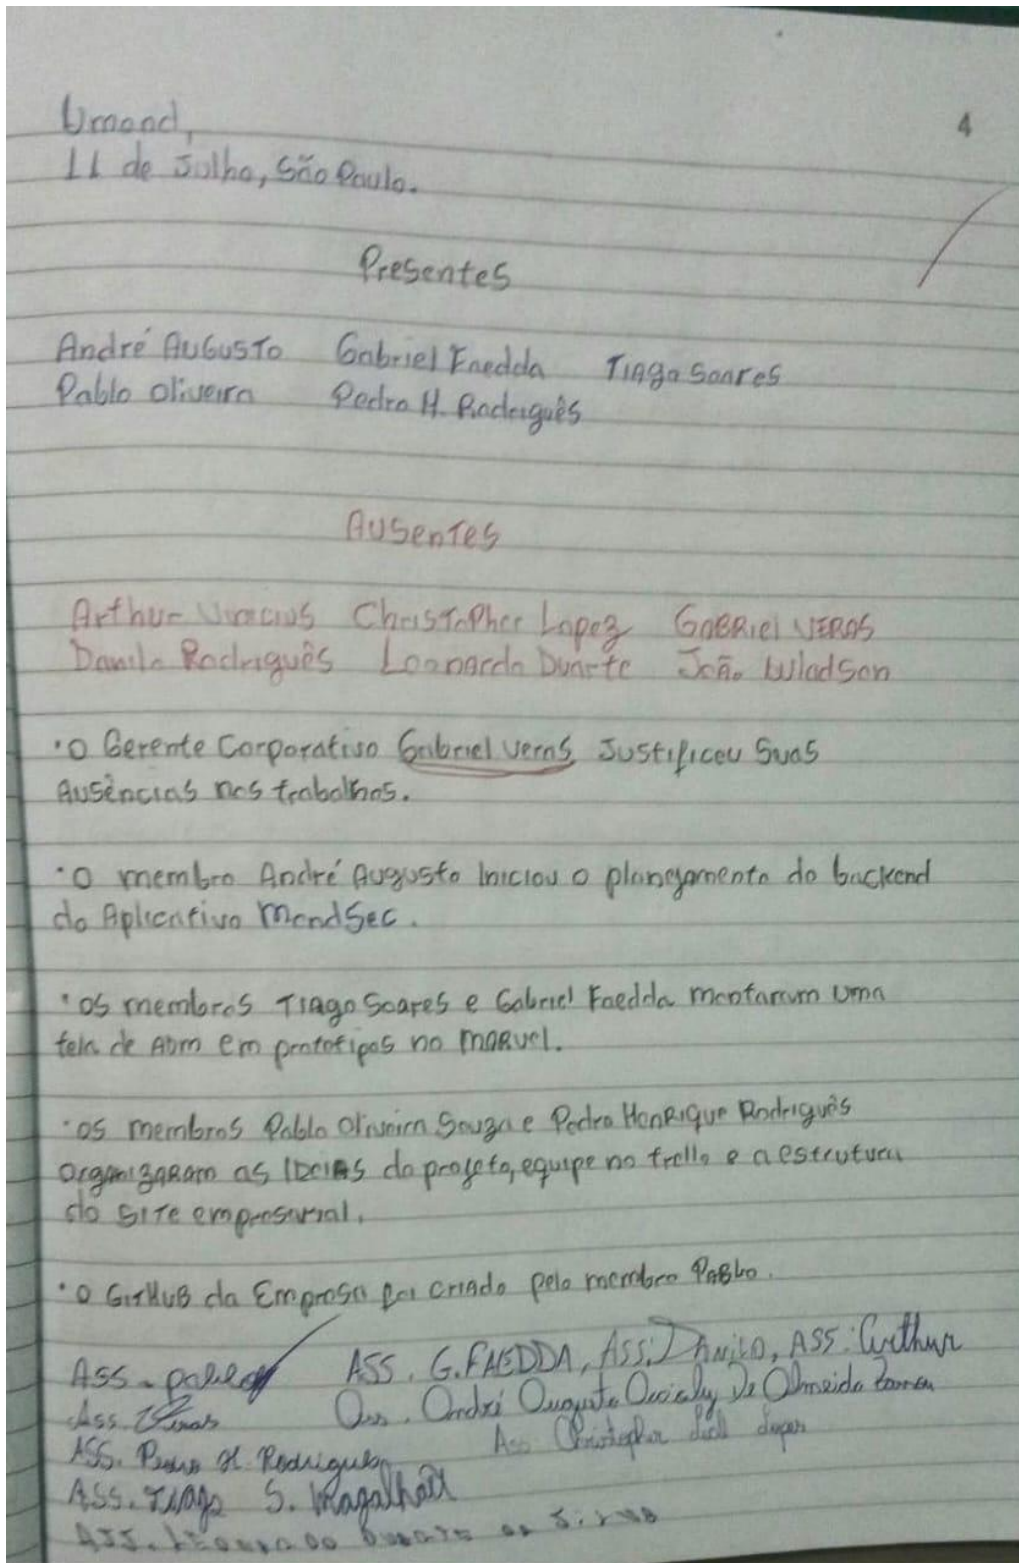 Umond,
4
11 de Julho, São Paulo.
Presentes
André Augusto Gabriel Faedda Tiago Soares
Pablo Oliveira Pedro H. Rodriguês
Ausentes
Arthur Vinicius Christopher Lopez Gabriel Veras
Danilo Rodriguês Leonardo Duarte João Wladson
·O Gerente Corporativo Gabriel Veras, Justificou Suas
Ausências nos trabalhos.
·O membro André Augusto Iniciou o planejamento do backend
do Aplicativo MondSec.
·Os membros Tiago Soares e Gabriel Faedda montaram uma
tela de Adm em prototipos no marvel.
·Os membros Pablo Oliveira Souza e Pedro Henrique Rodriguês
organizaram as Ideias do projeto, equipe no trello e a estrutura
do Site empresarial.
·O GitHub da Empresa foi criado pelo membro Pablo.
Ass. pablo Ass. G. FAEDDA, Ass. Danilo, Ass: Arthur
Ass. Veras Ass. André Augusto De Almeida
Ass. Pedro H. Rodrigues Ass Christopher
Ass. Tiago S. Magalhães
Ass. Leonardo Duarte da Silva